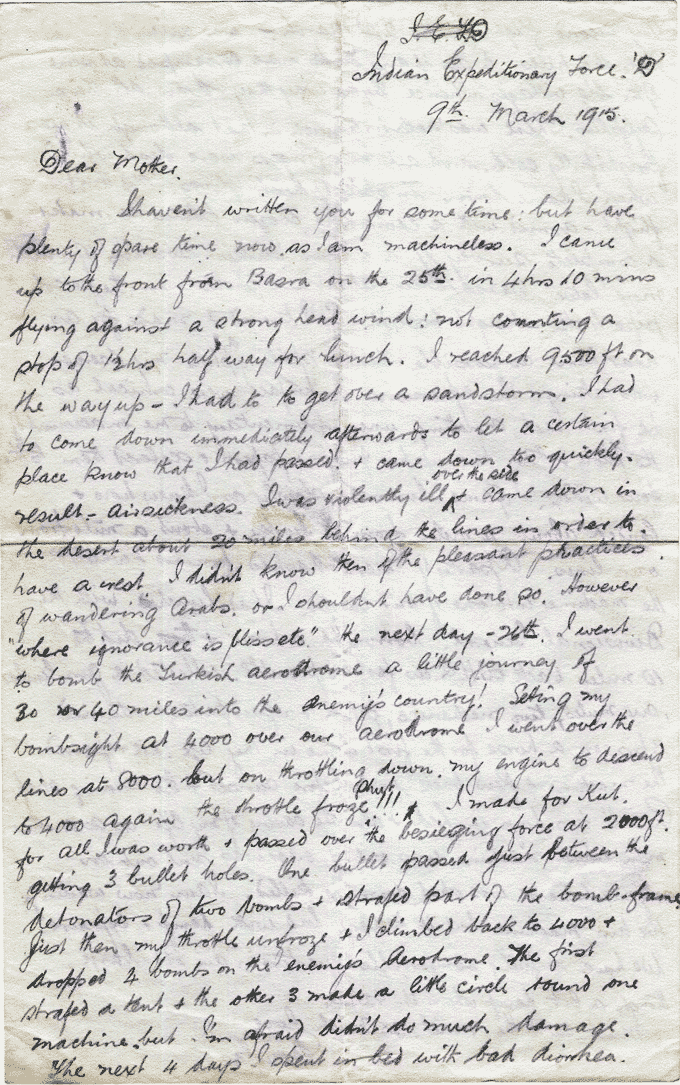 Indian Expeditionary Force 'D'
9th. March 1915.
Dear Mother.
I haven't written you for some time: but have
plenty of spare time now as I am machineless. I came
up to the front from Basra on the 25th. in 4hrs 10 mins
flying against a strong head wind: not counting a
stop of 1½hrs half way for lunch. I reached 9500 ft on
the way up - I had to to get over a sandstorm. I had
to come down immediately afterwards to let a certain
place know that I had passed. + came down too quickly.
result - airsickness. I was violently ill over the side + came down in
the desert about 20 miles behind the lines in order to
have a rest. I didn't know then of the pleasant practices
of wandering Arabs. or I shouldn't have done so. However
"where ignorance is bliss etc" the next day - 26th. I went
to bomb the Turkish aerodrome a little journey of
30 or 40 miles into the enemy's country! Setting my
bombsight at 4000 over our aerodrome I went over the
lines at 8000. but on throttling down. my engine to descend
to 4000 again the throttle froze !!! I made for Kut.
for all I was worth + passed over the besieging force at 2000ft.
getting 3 bullet holes. One bullet passed just between the
detonators of two bombs + strafed part of the bomb-frame
Just then my throttle unfroze + I climbed back to 4000 +
dropped 4 bombs on the enemy's Aerodrome. The first
strafed a tent + the other 3 made a little circle round one
machine. but I'm afraid didn't do much damage.
The next 4 days I spent in bed with bad diorrhea.